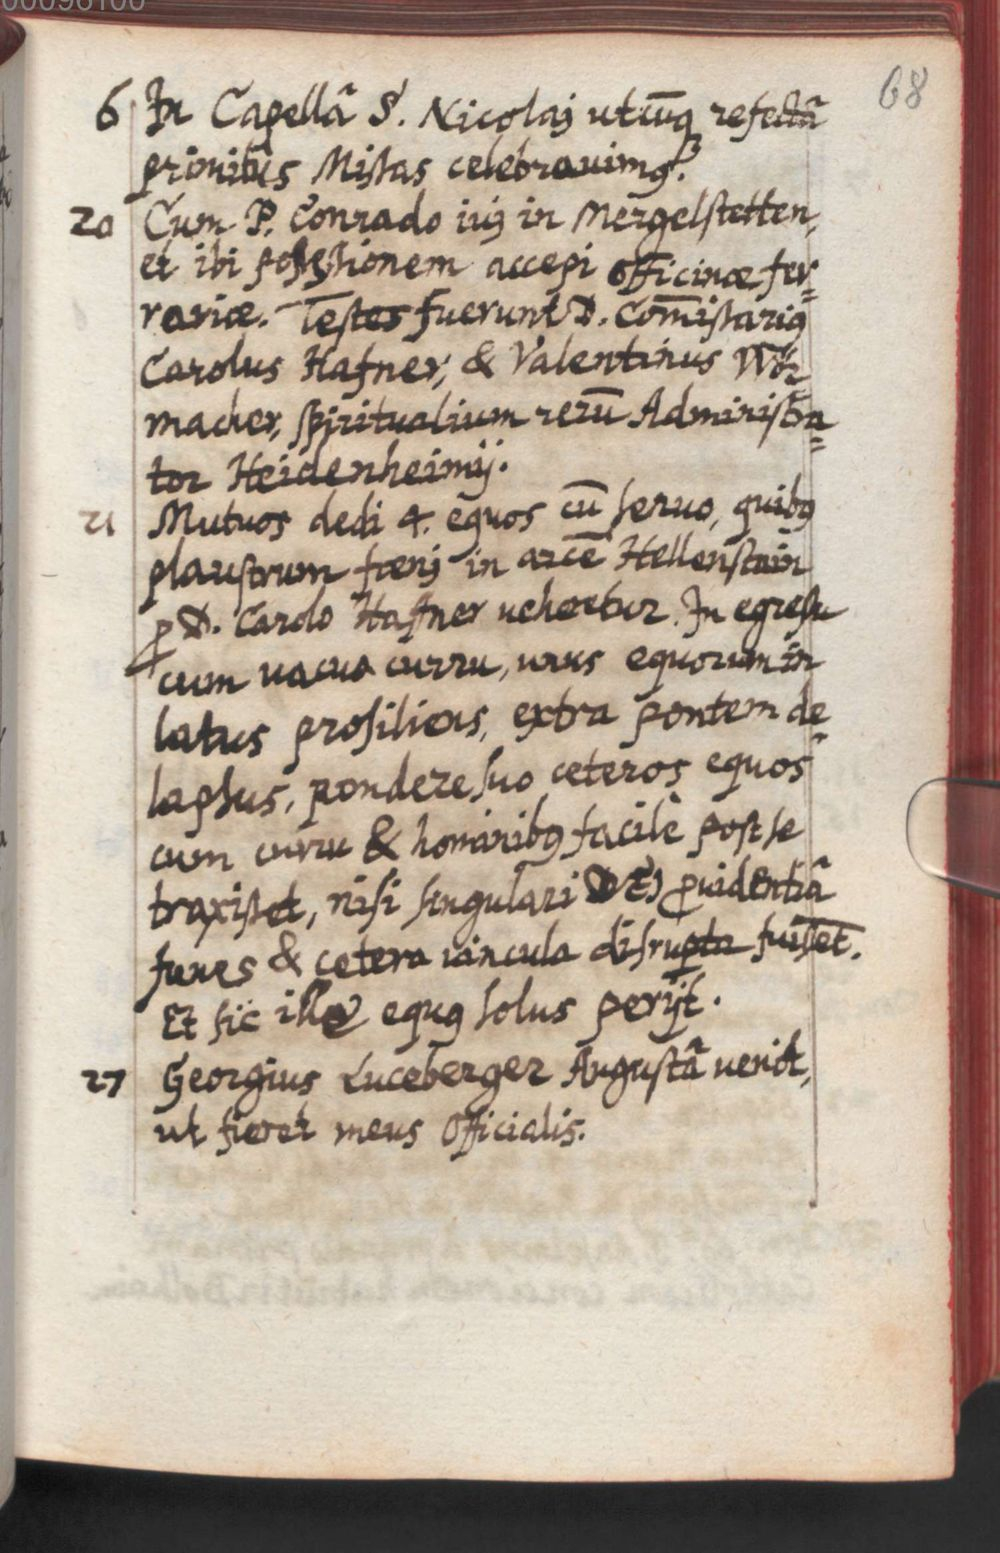 00096100
68
6 In Capellâ S. Nicolaj utcūq refectâ
primitus Missas celebrauimꝰ.
20 Cum P. Conrado iuj in Mergelstetten,
et ibi possessionem accepi officinæ fer=
rariæ. Testes fuerunt D. Com̄issariꝰ
Carolus Hafner, & Valentinus
macher, spiritualium rerū Administra=
tor Heidenheimij.
21 Mutuos dedi 4. equos cū seruo, quibꝰ
plaustrum fœnj in arcē Hellenstain
ꝑ D. Carolo Haffner ueheretur. In egressu
cum uacuo curru, unus equorum in
latus prosiliens, extra pontem de=
lapsus, pondere suo ceteros equos
cum curru & hominibꝰ facilè post se
traxisset, nisi singulari DEI ꝓuidentiâ
funes & cetera uincula disrupta fuissēt.
Et sic ille equꝰ solus perijt.
27 Georgius Luceberger Augustâ uenit,
ut fieret meus Officialis.